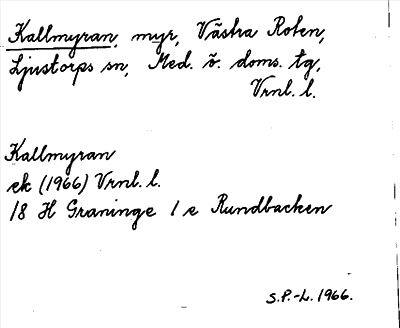 Kallmyran, myr, Västra Roten,
Ljustorps sn, Med. ö. doms. tg,
Vrnl. l.
Kallmyran
ek (1966) Vrnl. l.
18 H Graninge 1 e Rundbacken
S.P.-L. 1966.